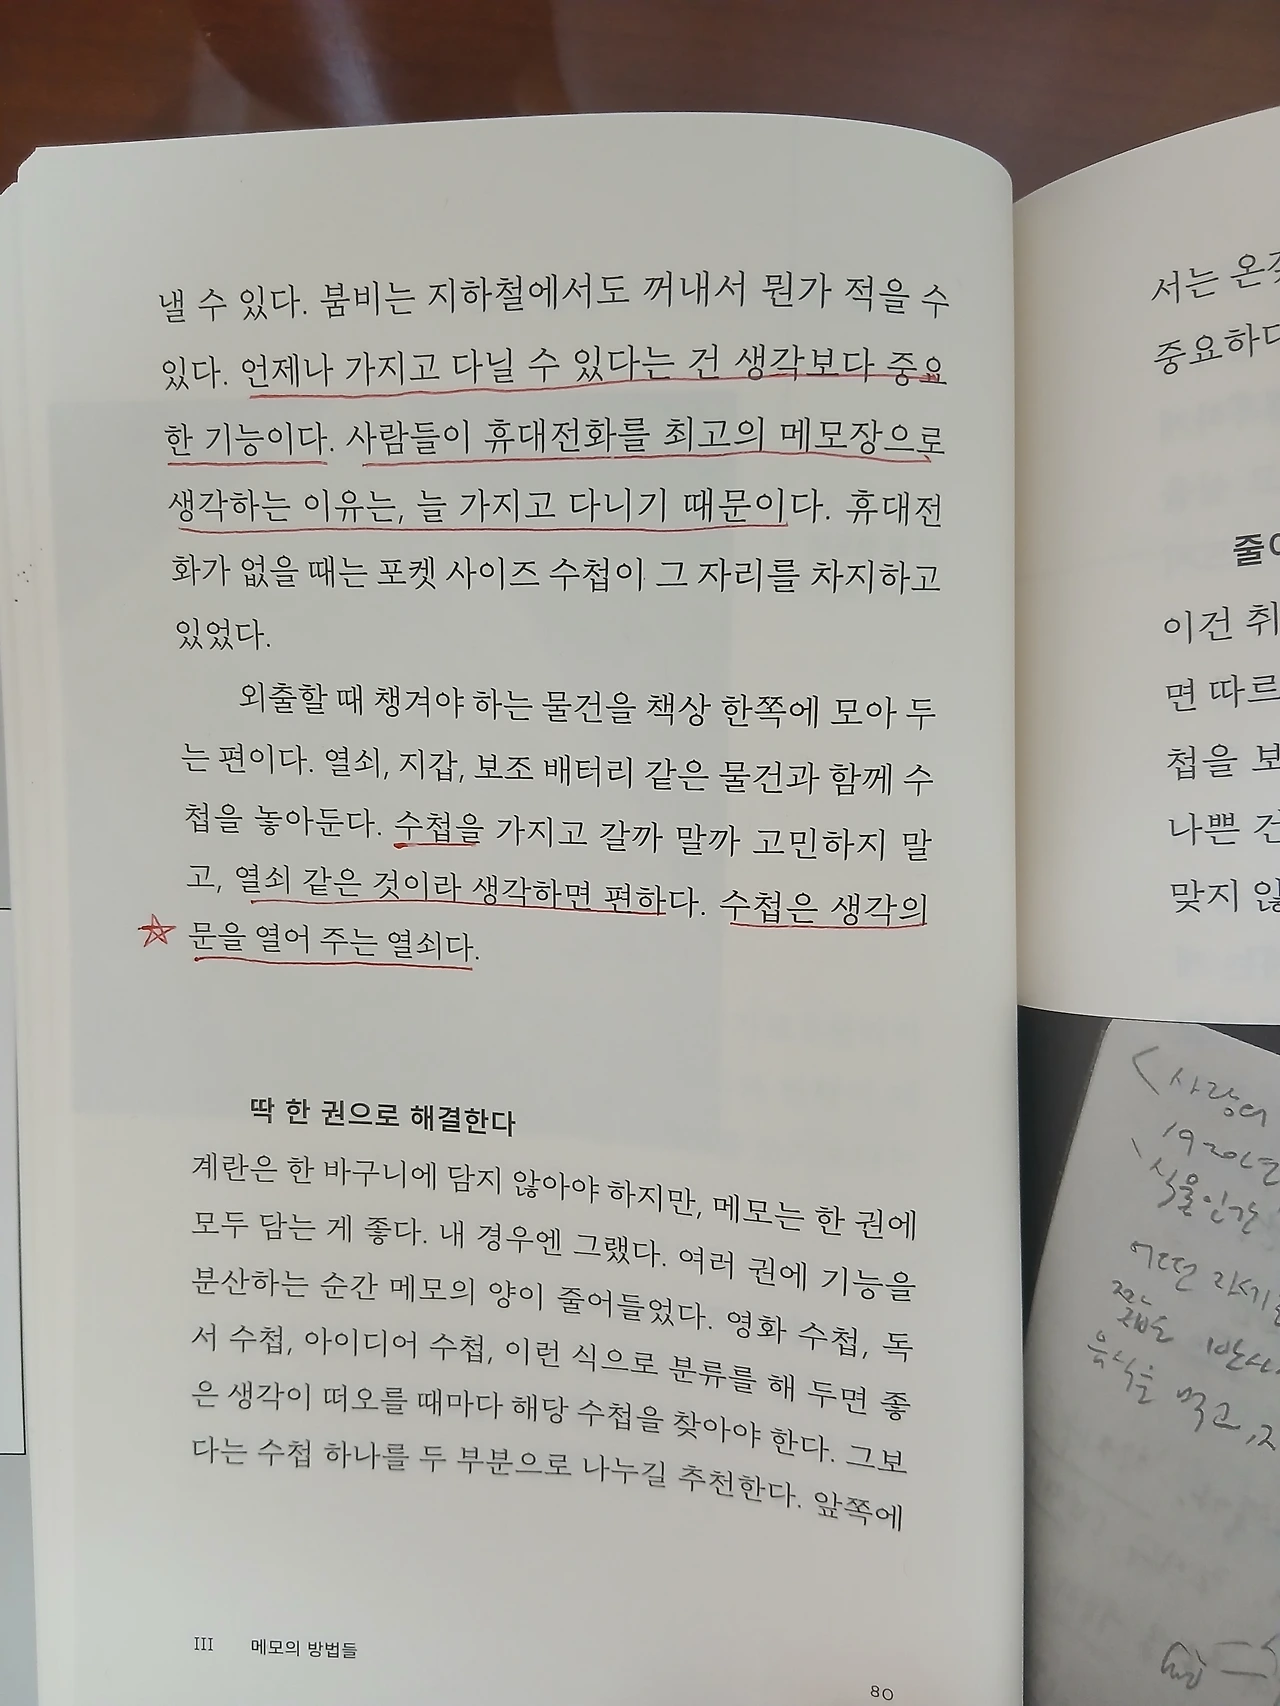 낼 수 있다. 붐비는 지하철에서도 꺼내서 뭔가 적을 수
있다. 언제나 가지고 다닐 수 있다는 건 생각보다 중요
한 기능이다. 사람들이 휴대전화를 최고의 메모장으로
생각하는 이유는, 늘 가지고 다니기 때문이다. 휴대전
화가 없을 때는 포켓 사이즈 수첩이 그 자리를 차지하고
있었다.
외출할 때 챙겨야 하는 물건을 책상 한쪽에 모아 두
는 편이다. 열쇠, 지갑, 보조 배터리 같은 물건과 함께 수
첩을 놓아둔다. 수첩을 가지고 갈까 말까 고민하지 말
고, 열쇠 같은 것이라 생각하면 편하다. 수첩은 생각의
문을 열어 주는 열쇠다.
딱 한 권으로 해결한다
계란은 한 바구니에 담지 않아야 하지만, 메모는 한 권에
모두 담는 게 좋다. 내 경우엔 그랬다. 여러 권에 기능을
분산하는 순간 메모의 양이 줄어들었다. 영화 수첩, 독
서 수첩, 아이디어 수첩, 이런 식으로 분류를 해 두면 좋
은 생각이 떠오를 때마다 해당 수첩을 찾아야 한다. 그보
다는 수첩 하나를 두 부분으로 나누길 추천한다. 앞쪽에
III 메모의 방법들
80
서는
중요하다
이건 취
면 따르
첩을 보
나쁜 건
맞지 않
식물인간
먹고,